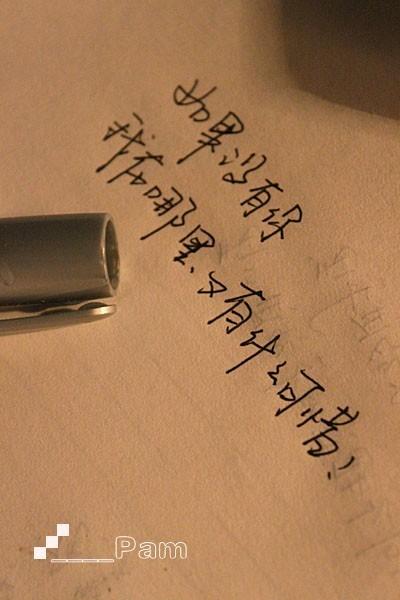 如果没有你
我在哪里、又有什么可惜!
____Pam